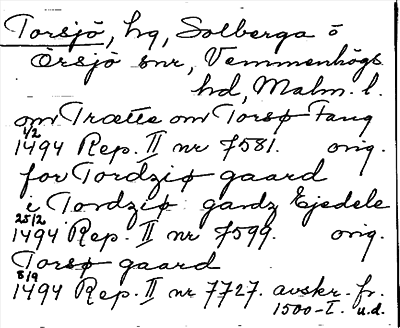 Torsjö, hg, Solberga o
Örsjö snr, Vemmenhögs
hd, Malm. l.
om Trætte om Torsø Fang
1/2
1494 Rep. II nr 7581. orig.
for Tordziø gaard
i Tordziø gardz Ejedele
25/2
1494 Rep. II nr 7599. orig.
Torsø gaard
8/9
1494 Rep. II nr 7727. avskr. fr.
1500-t. u.d.